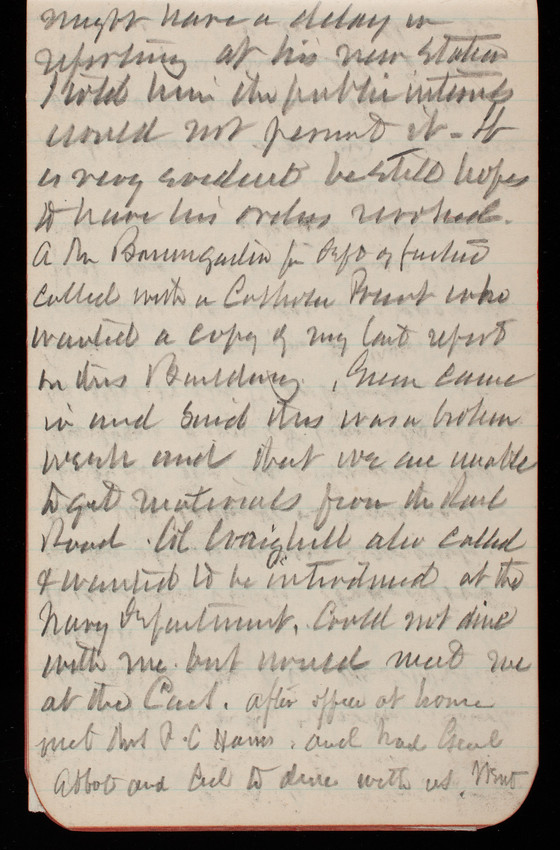 might have a delay in
reporting at his new station
I told him the public interests
would not permit it - It
is very evident he still hopes
to have his orders revoked.
A Mr Baumgarten for Dept of Justice
called with a Catholic Priest who
wanted a copy of my last report
on this Building, Green came
in and said this was a broken
week and that we are unable
to get materials from the Rail
Road. Col Craighill also called
& wanted to be introduced at the
Navy Department. Could not dine
with me but would meet me
at the Club. after office at home
met Mrs P.C Hains. and had Genl
Abbot and to dine with us. Went